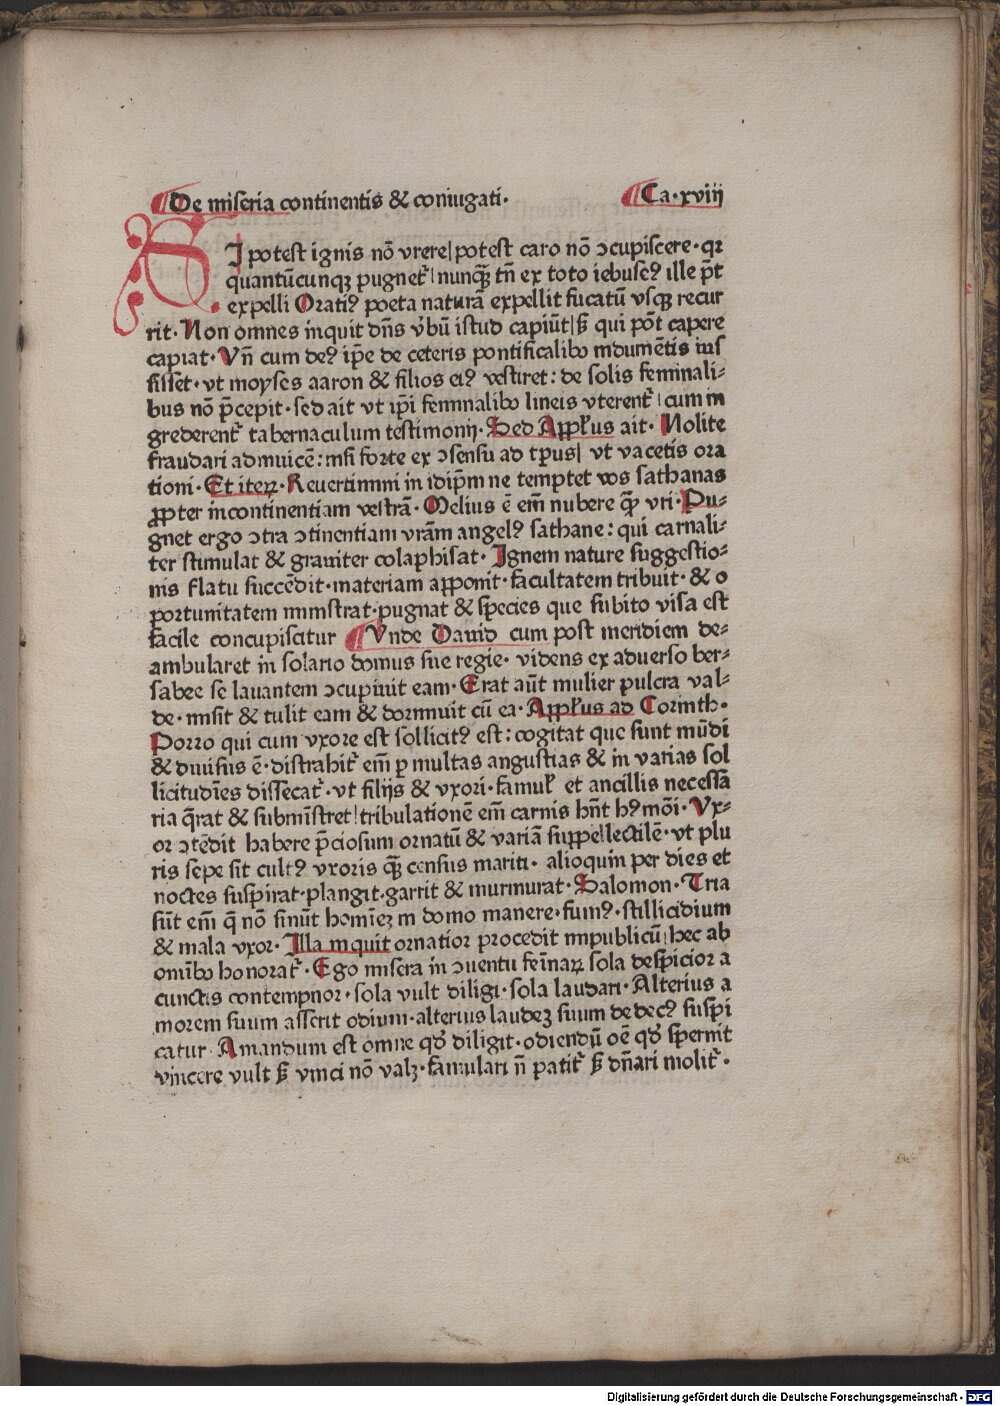 De miseria continentis & coniugati· Ca·xviij
SI potest ignis nō vrere/potest caro nō ɔcupiscere·qꝛ
quantūcunqꝫ pugnet᷑/nunqꝫ̄ tn̄ ex toto iebuseꝰ ille p̄t
expelli Oratiꝰ poeta naturā expellit fucatū vsqꝫ recur
rit·Non omnes inquit dn̄s v̓bū istud capiūt/sꝫ qui pōt capere
capiat·Vn̄ cum deꝰ ip̄e de ceteris pontificalibꝰ indumētis ius
sisset·vt moyses aaron & filios eiꝰ vestiret: de solis feminali⸗
bus nō p̄cepit·sed ait vt ip̄i feminalibꝰ lineis vterent᷑/cum in
grederent᷑ tabernaculum testimonij·Sed Apꝑlus ait·Nolite
fraudari adinuicē: nisi forte ex ɔsensu ad tp̄us/ vt vacetis ora
tioni·Et iteꝝ·Reuertimini in idip̄m ne temptet vos sathanas
ꝓpter incontinentiam vestrā·Melius ē em̄ nubere qꝫ̄ vri·Pu⸗
gnet ergo ɔtra ɔtinentiam vrām angelꝰ sathane: qui carnali⸗
ter stimulat & grauiter colaphisat·Ignem nature suggestio⸗
nis flatu succēdit·materiam apponit·facultatem tribuit·& o
portunitatem ministrat·pugnat & species que subito visa est
facile concupiscitur Vnde Dauid cum post meridiem de⸗
ambularet in solario domus sue regie· videns ex aduerso ber⸗
sabee se lauantem ɔcupiuit eam·Erat aūt mulier pulcra val⸗
de·misit & tulit eam & dormiuit cū ea·Apꝑlus ad Corinth·
Porro qui cum vxore est sollicitꝰ est: cogitat que sunt mūdi
& diuisus ē·distrahit᷑ em̄ ꝑ multas angustias & in varias sol
licitudīes dissecat᷑·vt filijs & vxori·famul᷑ et ancillis necessa
ria q̄rat & submīstret/tribulationē em̄ carnis hn̄t hꝰmōi·Vx⸗
or ɔtēdit habere p̄ciosum ornatū & variā suppellectilē·vt plu
ris sepe sit cultꝰ vxoris qꝫ̄ census mariti· alioquin per dies et
noctes suspirat·plangit·garrit & murmurat·Salomon·Tria
sūt em̄ q̄ nō sinūt homīeꝫ in domo manere·fumꝰ·stillicidium
& mala vxor·Illa inquit ornatior procedit inpublicū/hec ab
omībꝰ honorat᷑·Ego misera in ɔuentu feīnaꝝ sola despicior a
cunctis contempnor·sola vult diligi·sola laudari·Alterius a
morem suum asserit odium·alterius laudeꝫ suum dedecꝰ suspi
catur·Amandum est omne qd̓ diligit·odiendū oē qd̓ spernit
vincere vult sꝫ vinci nō valꝫ·famulari n̄ patit᷑ sꝫ dn̄ari molit᷑·
Digitalisierung gefördert durch die Deutsche Forschungsgemeinschaft - DFG